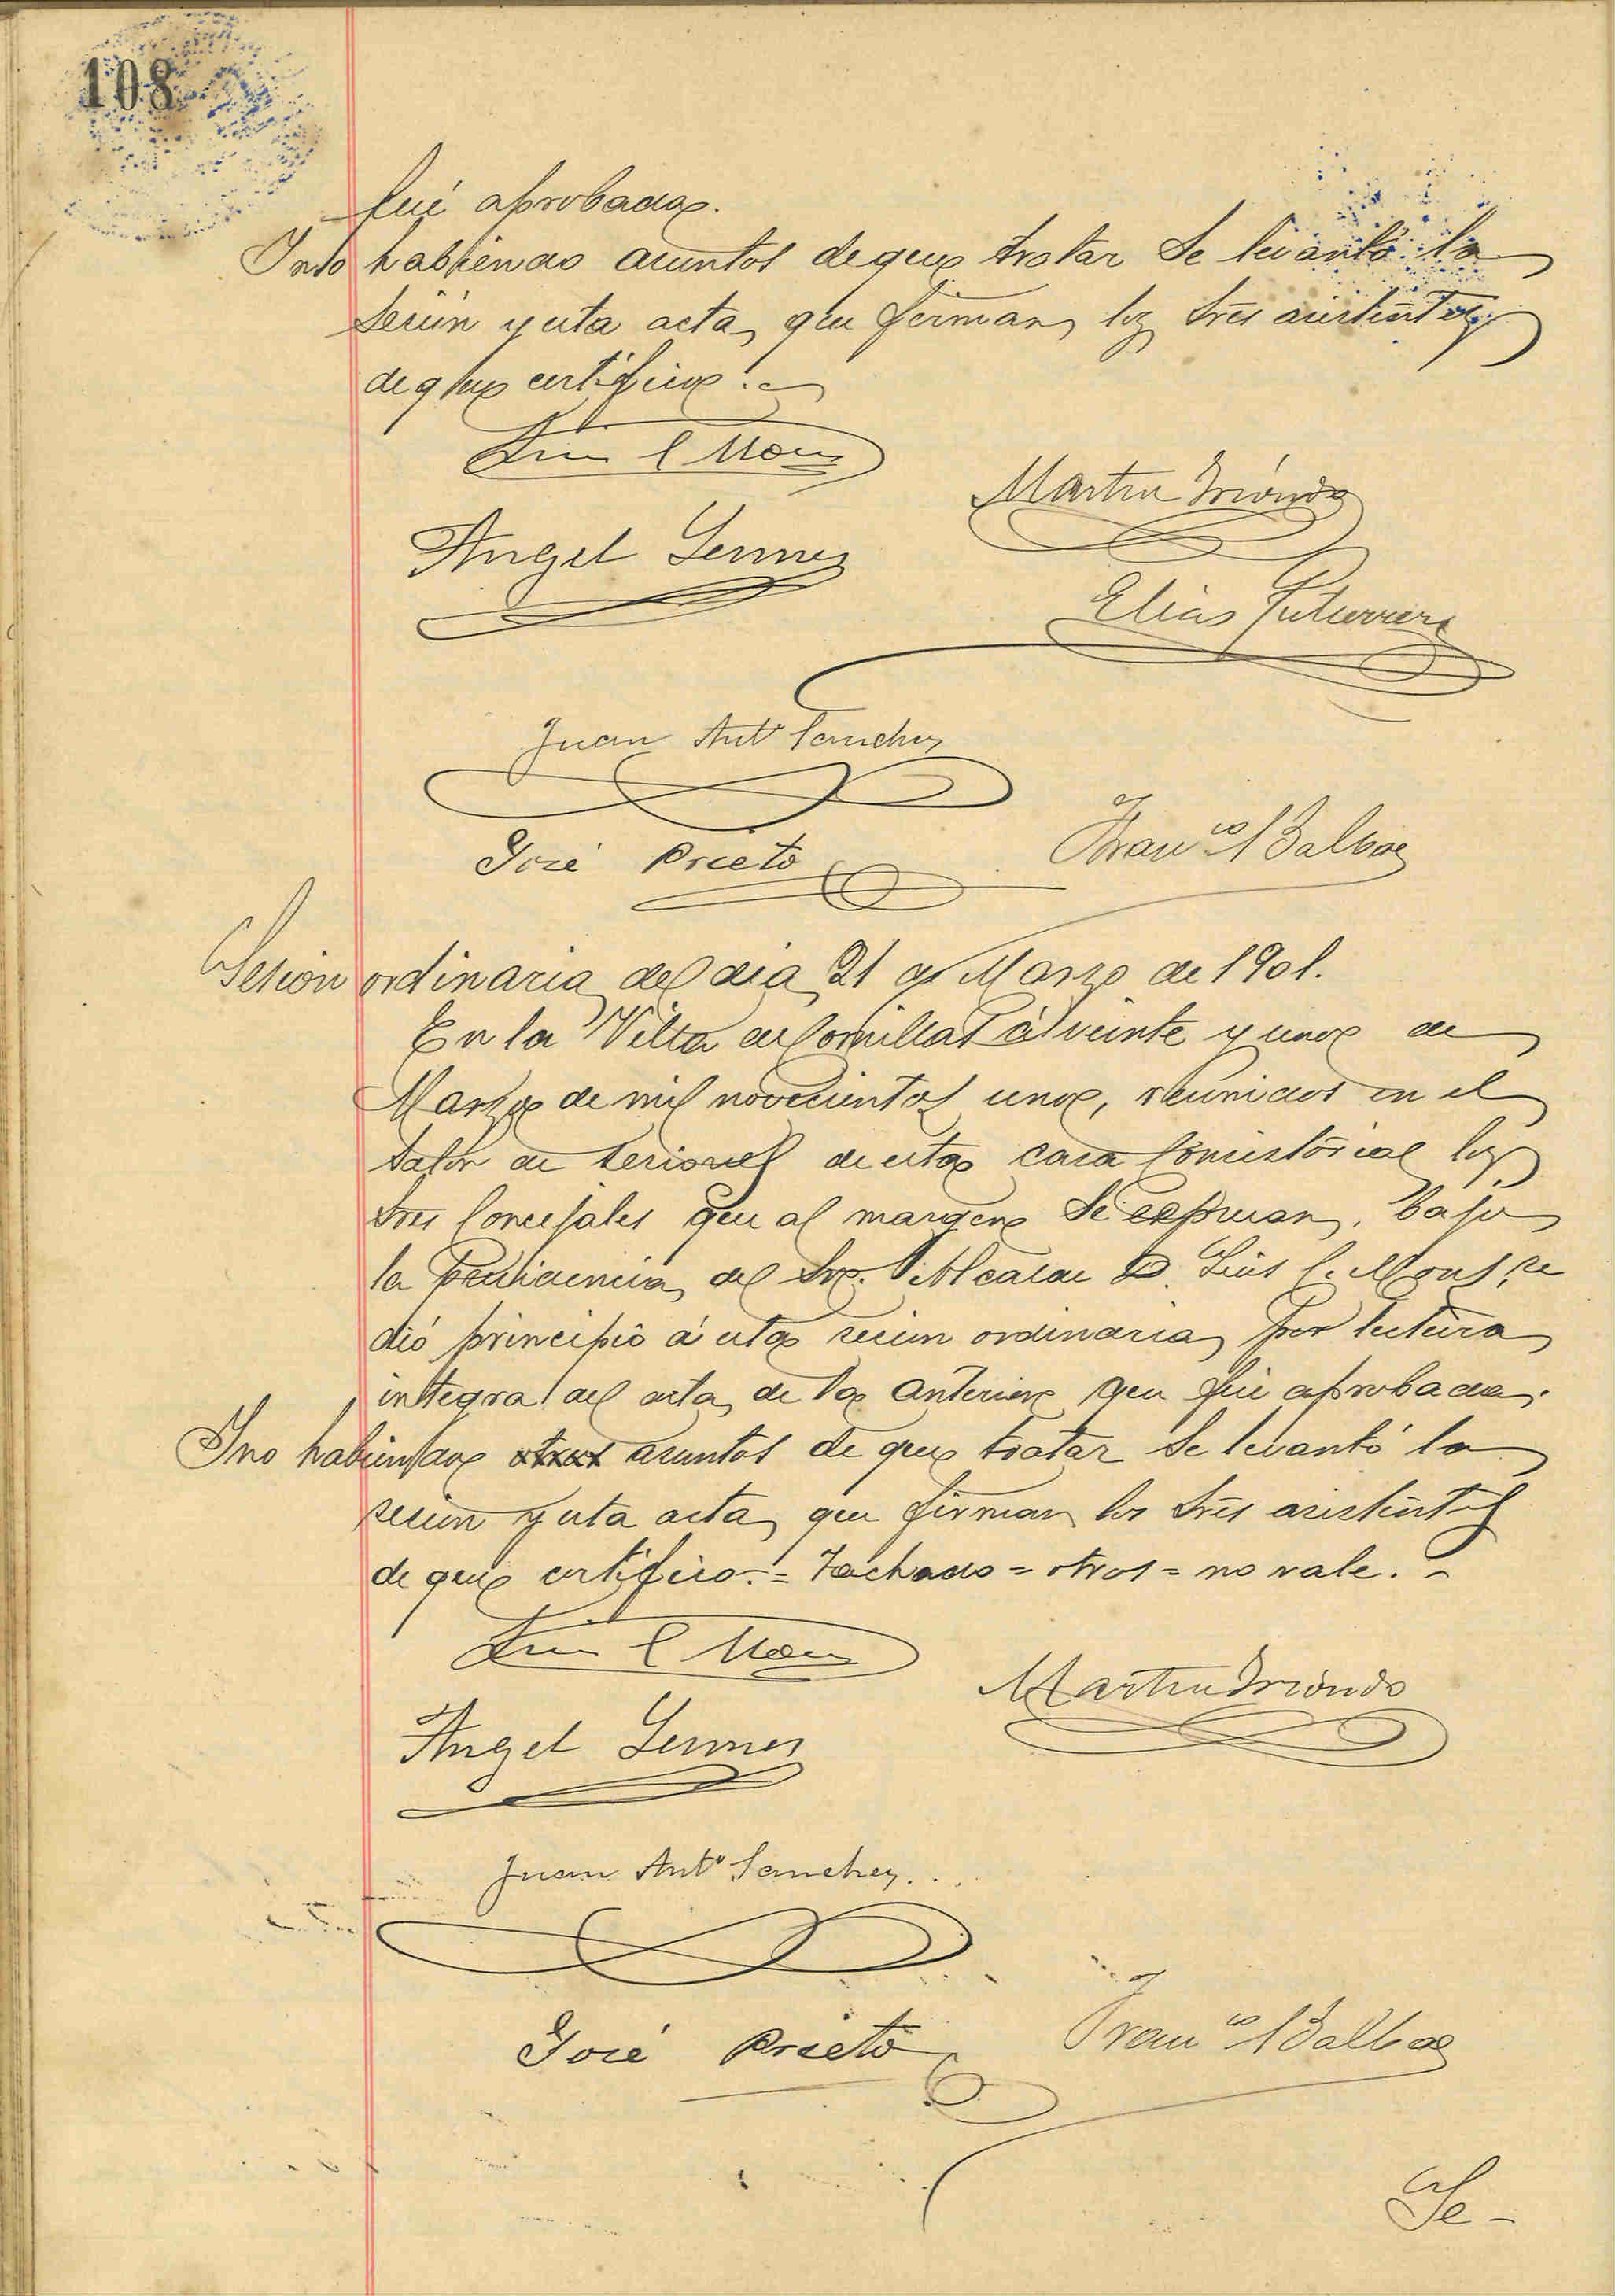 108
fué aprobada.
Y no habiendo asuntos de que tratar se levantó la
sesion y esta acta, que firman los Sres asistentes
de que certifico.
Luis C Mons
Martin Iriondo
Angel
Elias Gutierrez
Juan Antº Sanchez
José Prieto
Franco Balbas
Sesion ordinaria del dia 21 de Marzo de 1901.
En la Villa de Comillas á veinte y uno de
Marzo de mil novecientos uno, reunidos en el
Salon de sesiones de esta casa Consistorial los
Sres Concejales que al margen se expresan, bajo
la Presidencia del Sr. Alcalde D. Luis C. Mons, se
dió principio á esta sesion ordinaria por lectura
integra del acta de la anterior que fué aprobada.
Y no habiendo otros asuntos de que tratar se levantó la
sesion y esta acta, que firman los Sres asistentes
de que certifico. = Tachado = otros = no vale. -
Luis C Mons
Martin Iriondo
Angel
Juan Antº Sanchez
José Prieto
Franco Balbas
Se-